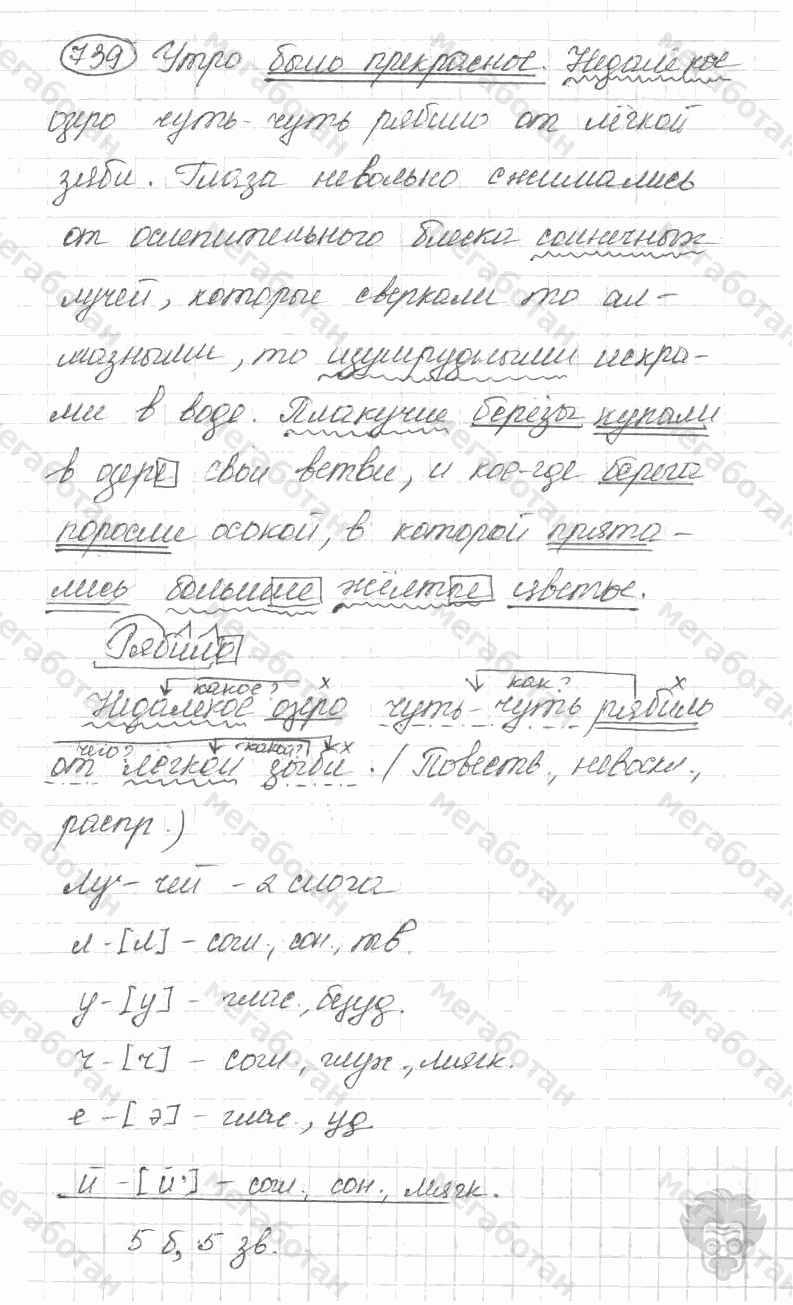 739 Утро было прекрасное. Недалёкое
озеро чуть-чуть рябило от лёгкой
зыби. Глаза невольно сжимались
от ослепительного блеска солнечных
лучей, которые сверкали то ал-
мазными, то изумрудными искра-
ми в воде. Плакучие берёзы купали
в озере свои ветви, и кое-где берега
поросли осокой, в которой прята-
лись большие жёлтые цветы.
Рябило
какое? х как? х
Недалекое озеро чуть-чуть рябило
чего? какой? х
от лёгкой зыби. (Повеств., невоскл.,
распр.)
Лу-чей - 2 слога
л-[л] - согл., сон., тв.
у-[у] - глас., безуд.
ч-[ч] - согл., глух., мягк.
е-[э] - глас., уд
й-[й'] - согл., сон., мягк.
5 б, 5 зв.
мегаботан